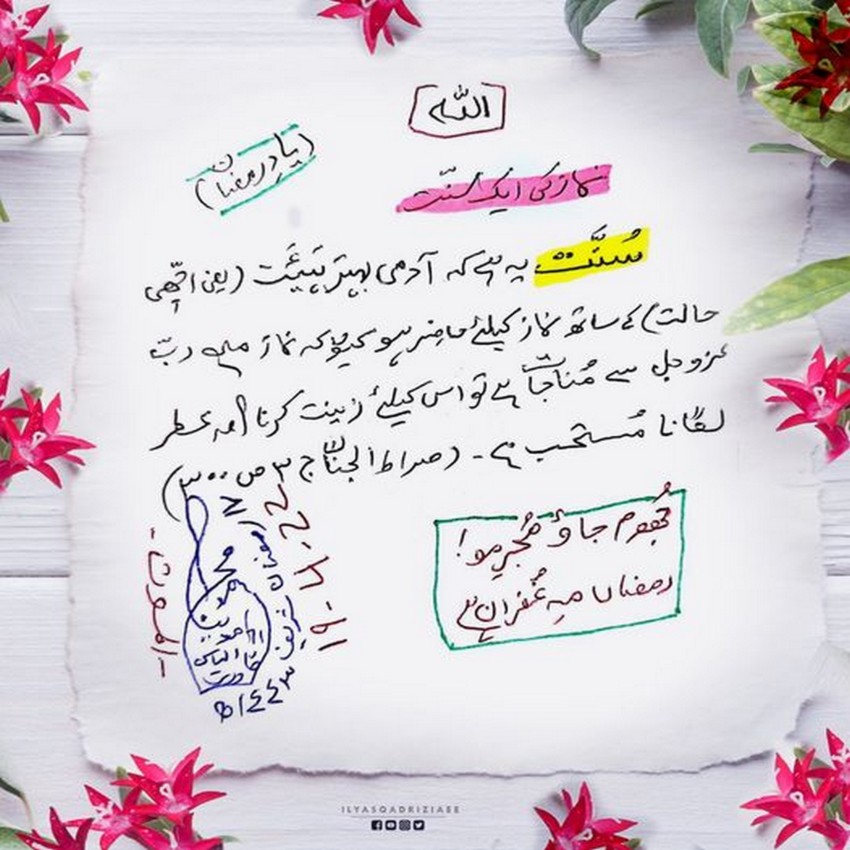 اللہ
(یادِ رمضان)
نماز کی ایک سنّت
سُنَّت یہ ہے کہ آدمی بہتر ہَیئَت (یعنی اچّھی
حالت) کے ساتھ نماز کیلئے حاضِر ہو کیونکہ نماز میں ربّ
عزوجل سے مُناجات ہے تو اس کیلئے زینت کرنا، عطر
لگانا مُستحَب ہے۔ (صراط الجنان ج ۳ ص ۳۰۰)
جُھوم جاؤ مُجرِمو!
رمضاں مہِ غُفران ہے
محمد
الیاس
قادری
رمضان شریف
۱۴۴۳ھ
۱۹-۴-۲۲
ILYASQADRIZIAEE